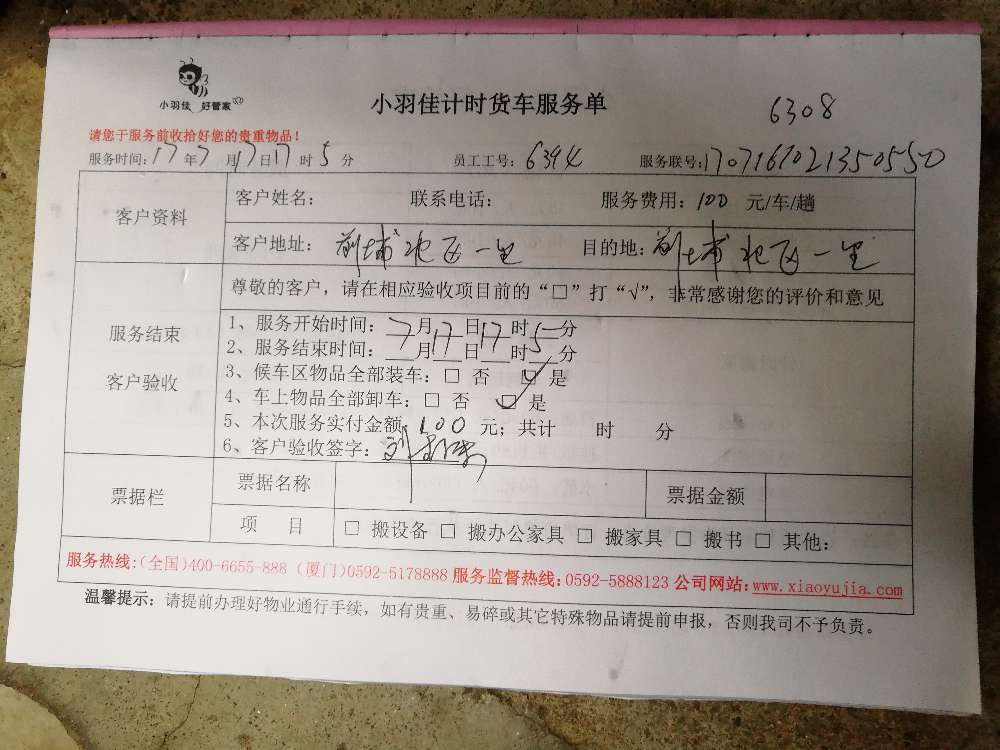 小羽佳 好管家
小羽佳计时货车服务单
6308
请您于服务前收拾好您的贵重物品！
服务时间：17年7月17日17时5分 员工工号：6394 服务联号：1707167021350550
客户资料
客户姓名： 联系电话： 服务费用：100 元/车/趟
客户地址：前埔北区一里 目的地：前埔北区一里
服务结束
客户验收
尊敬的客户，请在相应验收项目前的“□”打“√”，非常感谢您的评价和意见
1、服务开始时间：7月17日17时5分
2、服务结束时间：月 日 时 分
3、候车区物品全部装车：□ 否 ☑ 是
4、车上物品全部卸车：□ 否 ☑ 是
5、本次服务实付金额：100 元；共计 时 分
6、客户验收签字：
票据栏
票据名称 票据金额
项 目 □ 搬设备 □ 搬办公家具 □ 搬家具 □ 搬书 □ 其他：
服务热线：(全国)400-6655-888 (厦门)0592-5178888 服务监督热线：0592-5888123 公司网站：www.xiaoyujia.com
温馨提示：请提前办理好物业通行手续，如有贵重、易碎或其它特殊物品请提前申报，否则我司不予负责。